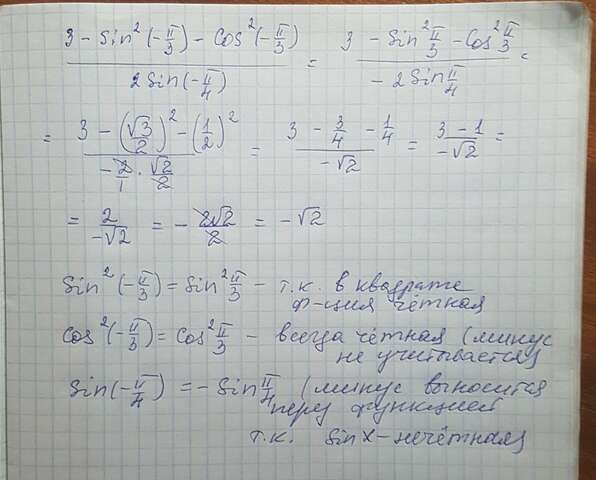 (3 - Sin²(-π/3) - Cos²(-π/3)) / (2 Sin(-π/4)) = (3 - Sin² π/3 - Cos² π/3) / (- 2 Sin π/4) =
= (3 - (√3/2)² - (1/2)²) / (- 2/1 · √2/2) = (3 - 3/4 - 1/4) / (-√2) = (3 - 1) / (-√2) =
= 2 / (-√2) = - 2√2 / 2 = -√2
Sin²(-π/3) = Sin² π/3 - т.к. в квадрате
ф-ция чётная
Cos²(-π/3) = Cos² π/3 - всегда чётная (минус
не учитывается)
Sin(-π/4) = - Sin π/4 (минус выносится
перед функцией
т.к. Sin x - нечётная)